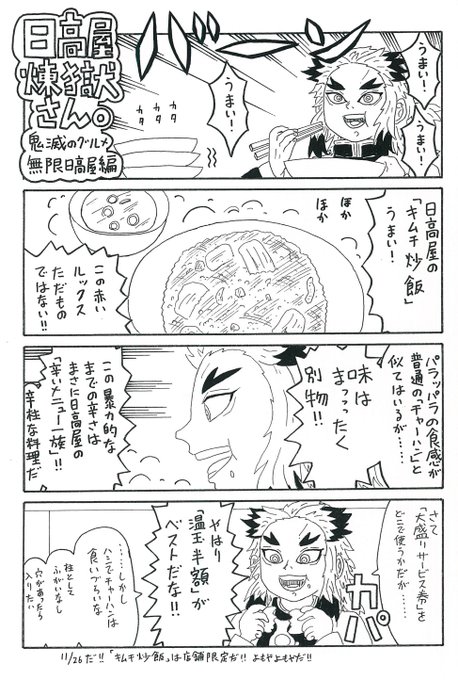 日高屋
煉獄
さん。
鬼滅のグルメ
無限日高屋編
バババッ
うまい!
うまい!
うまい!
カタ
カタ
カタ
日高屋の
「キムチ炒飯」
うまい!
ほか
ほか
この赤い
ルックス
ただもの
ではない!!
パラッパラの食感が
普通の「チャーハン」と
似てはいるが……
味は
まっったく
別物!!
この暴力的な
までの辛さは
まさに日高屋の
「辛いメニュー一族」!!
辛柱な料理だ
さて
「大盛りサービス券」を
どこで使うかだが……
カパ
やはり
「温玉半額」が
ベストだな!!
……しかし
ハシでチャーハンは
食いづらいな
柱として
ふがいなし
穴があったら
入りたい
11/26だ!!「キムチ炒飯」は店舗限定だ!! よもやよもやだ!!